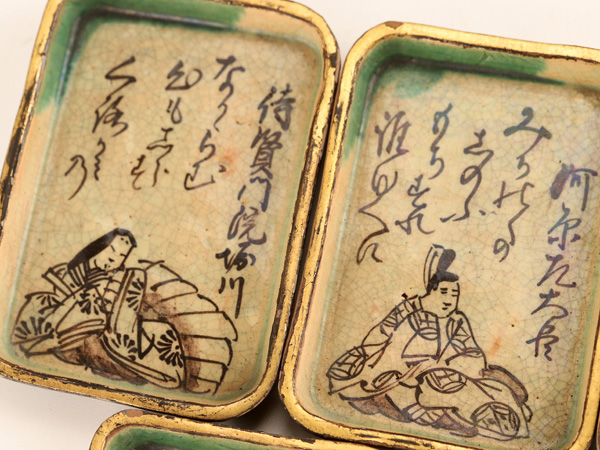 河原左大臣
みちのくの
しのふ
もちすり
誰ゆへに
待賢門院堀川
なかゝらむ
心もしらす
く路かみ乃